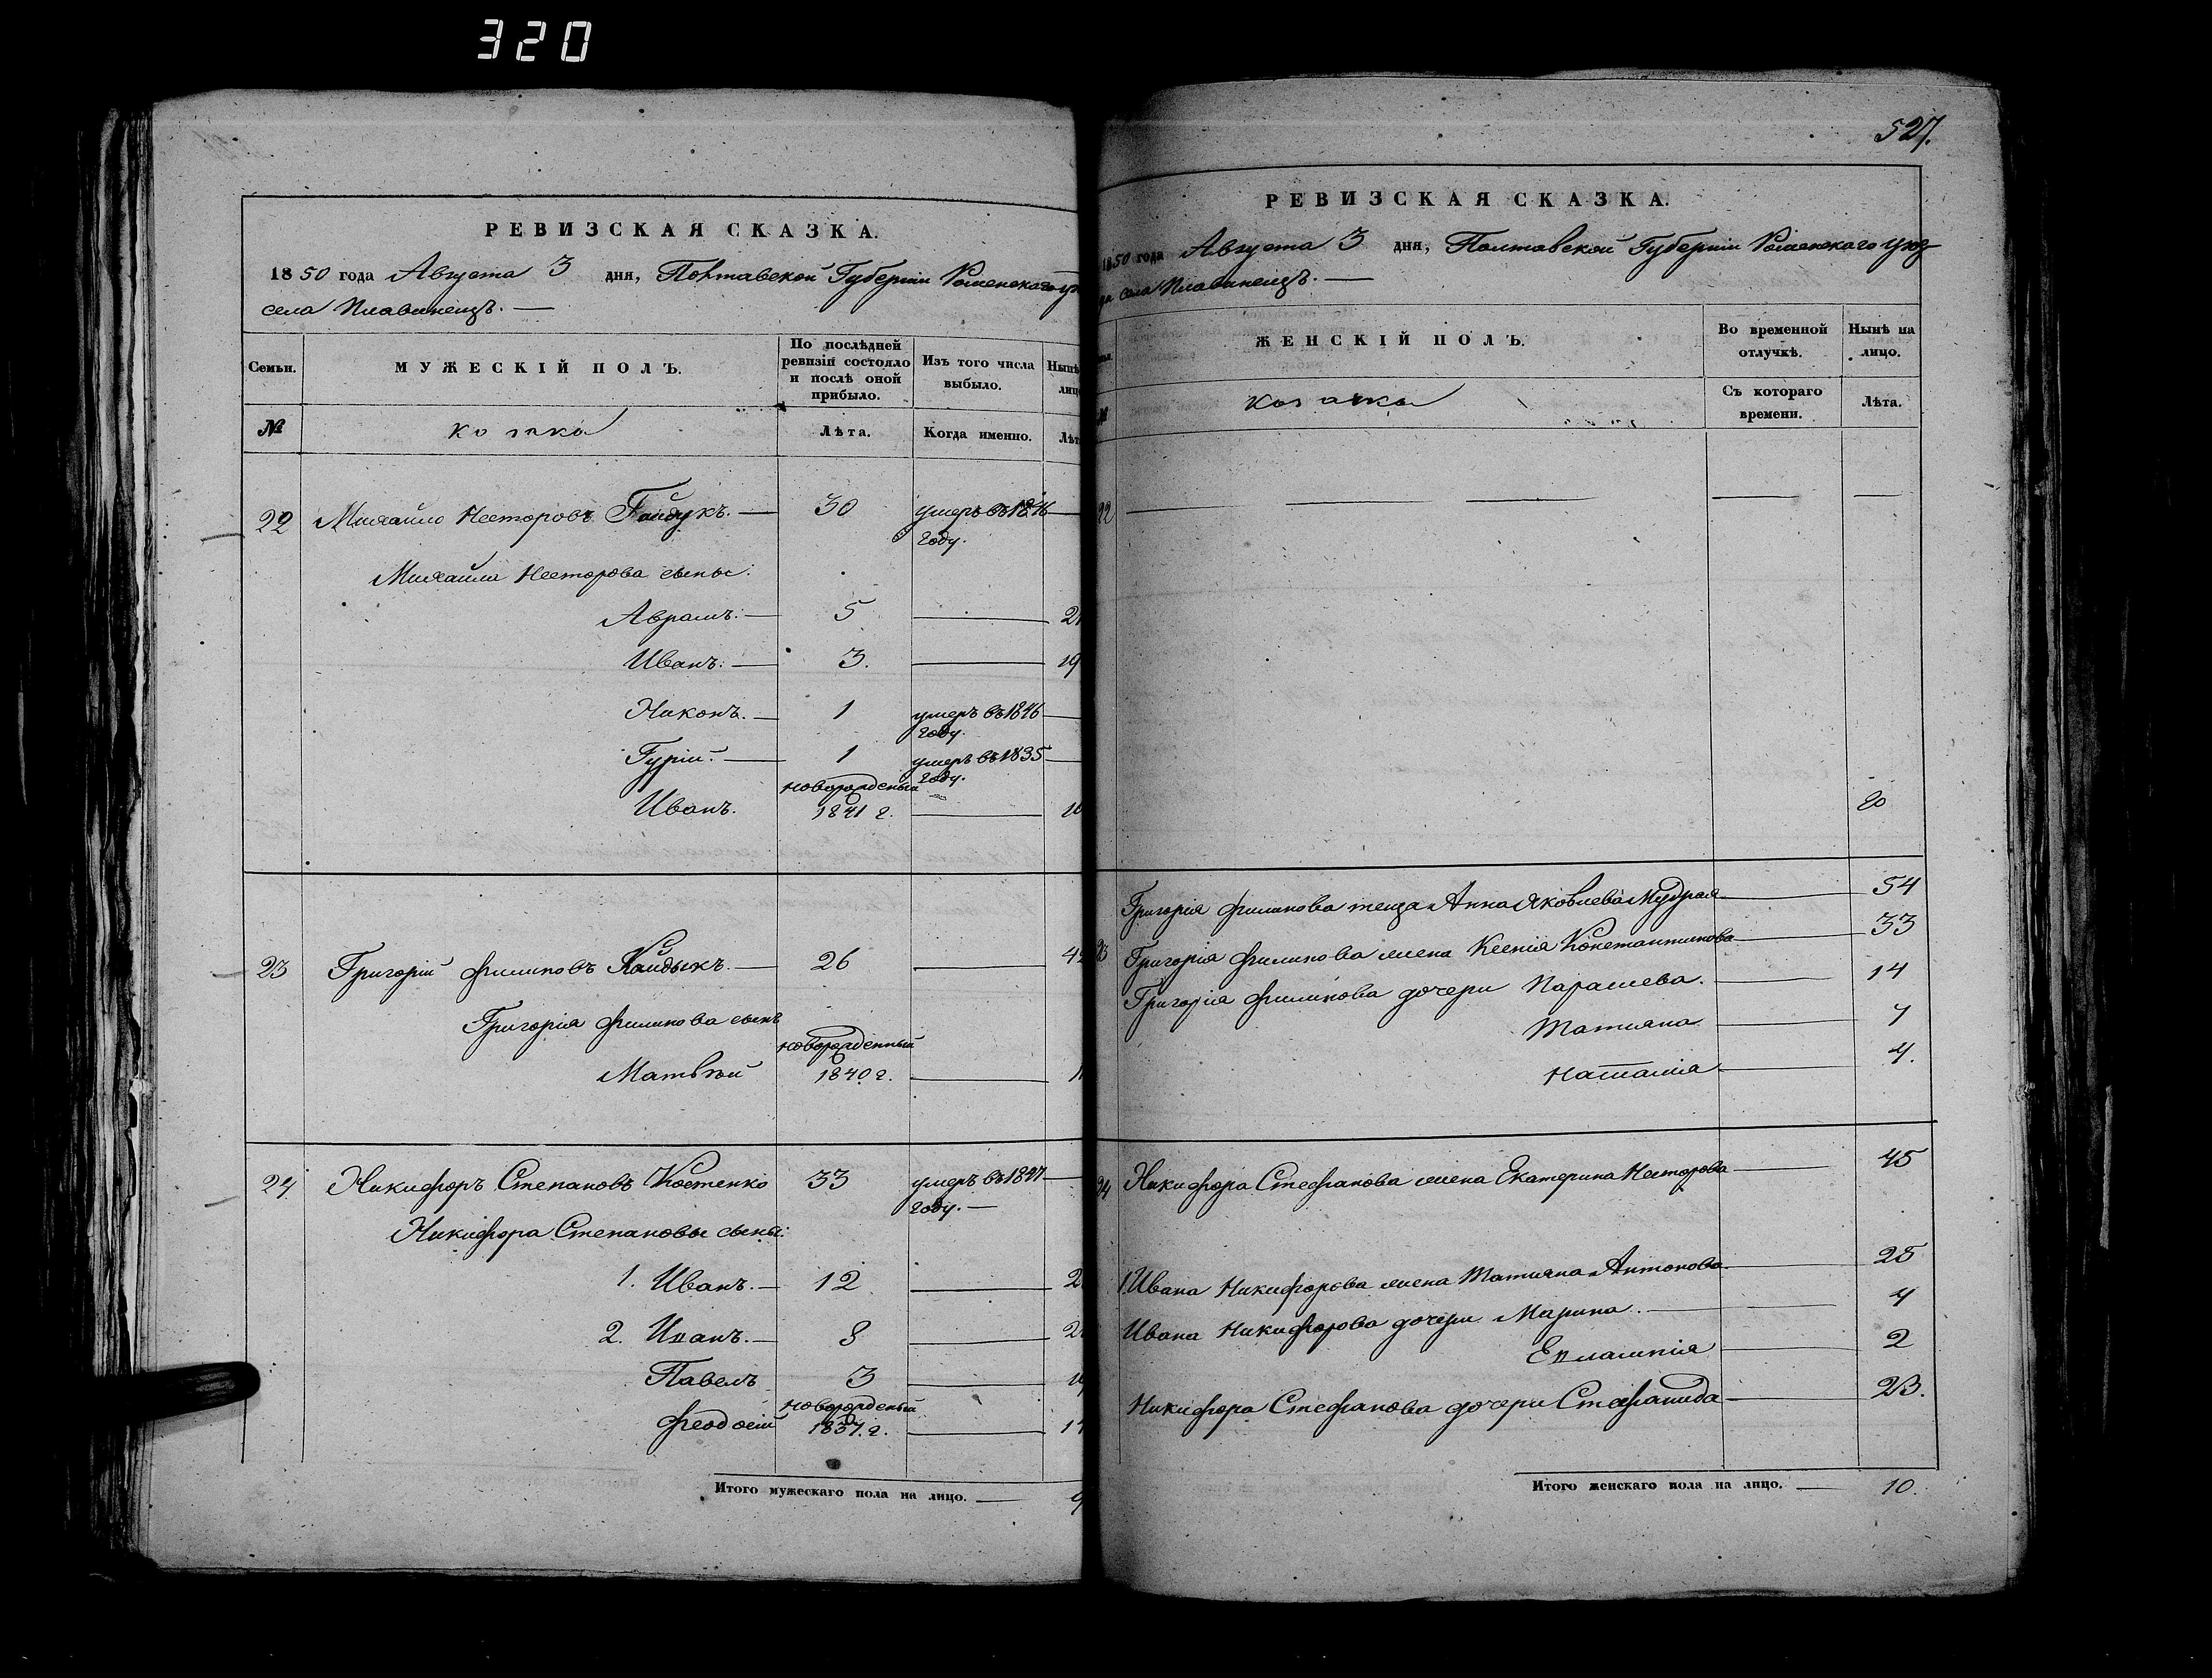 320
РЕВИЗСКАЯ СКАЗКА.
1850 года Августа 3 дня, Полтавской Губерніи Роменского
села Плавинещъ. —
Семьи. МУЖЕСКІЙ ПОЛЪ. По послѣдней ревизіи состояло и послѣ оной прибыло. Изъ того числа выбыло.
№ козаки Лѣта. Когда именно.
22 Михайло Несторовъ Гайдукъ. — 30 умеръ въ 1846 —
году.
Михайла Несторова сыны:
Аврамъ. — 5 — 21
Иванъ. — 3. — 19
Никонъ. — 1 умеръ въ 1846 —
году.
Гурій. — 1 умеръ въ 1835 —
году.
новорожденый
Иванъ. 1841 г. —
23 Григорій Филиповъ Кандыкъ. — 26 — 42
Григорія Филипова сынъ
новорожденный
Матвѣй 1840 г. —
24 Никифоръ Степановъ Костенко 33 умеръ въ 1847 —
году. —
Никифора Степановы сыны:
1. Иванъ. — 12 —
2. Иванъ. — 8 —
Павелъ 3 —
новорожденый
Феодосій 1837. г. —
Итого мужескаго пола на лицо. — 9
527.
РЕВИЗСКАЯ СКАЗКА.
1850 года Августа 3 дня, Полтавской Губерніи Роменскаго уез
да села Плавинещъ. —
ЖЕНСКІЙ ПОЛЪ. Во временной отлучкѣ. Нынѣ на лицо.
козачки Съ котораго времени. Лѣта.
22 — — — — —
20
Григорія Филипова теща Анна Яковлева Мудрая — 54
23 Григорія Филипова жена Ксенія Константинова — 33
Григорія Филипова дочери Парасцева. — 14
Татіяна — 7
Наталія — 4.
24 Никифора Стефанова жена Екатерина Несторова — 45
1. Ивана Никифорова жена Татіяна Антонова — 25
Ивана Никифорова дочери Марина. — 4
Евлампія — 2
Никифора Стефанова дочери Стефанида — 23.
Итого женскаго пола на лицо. — 10.